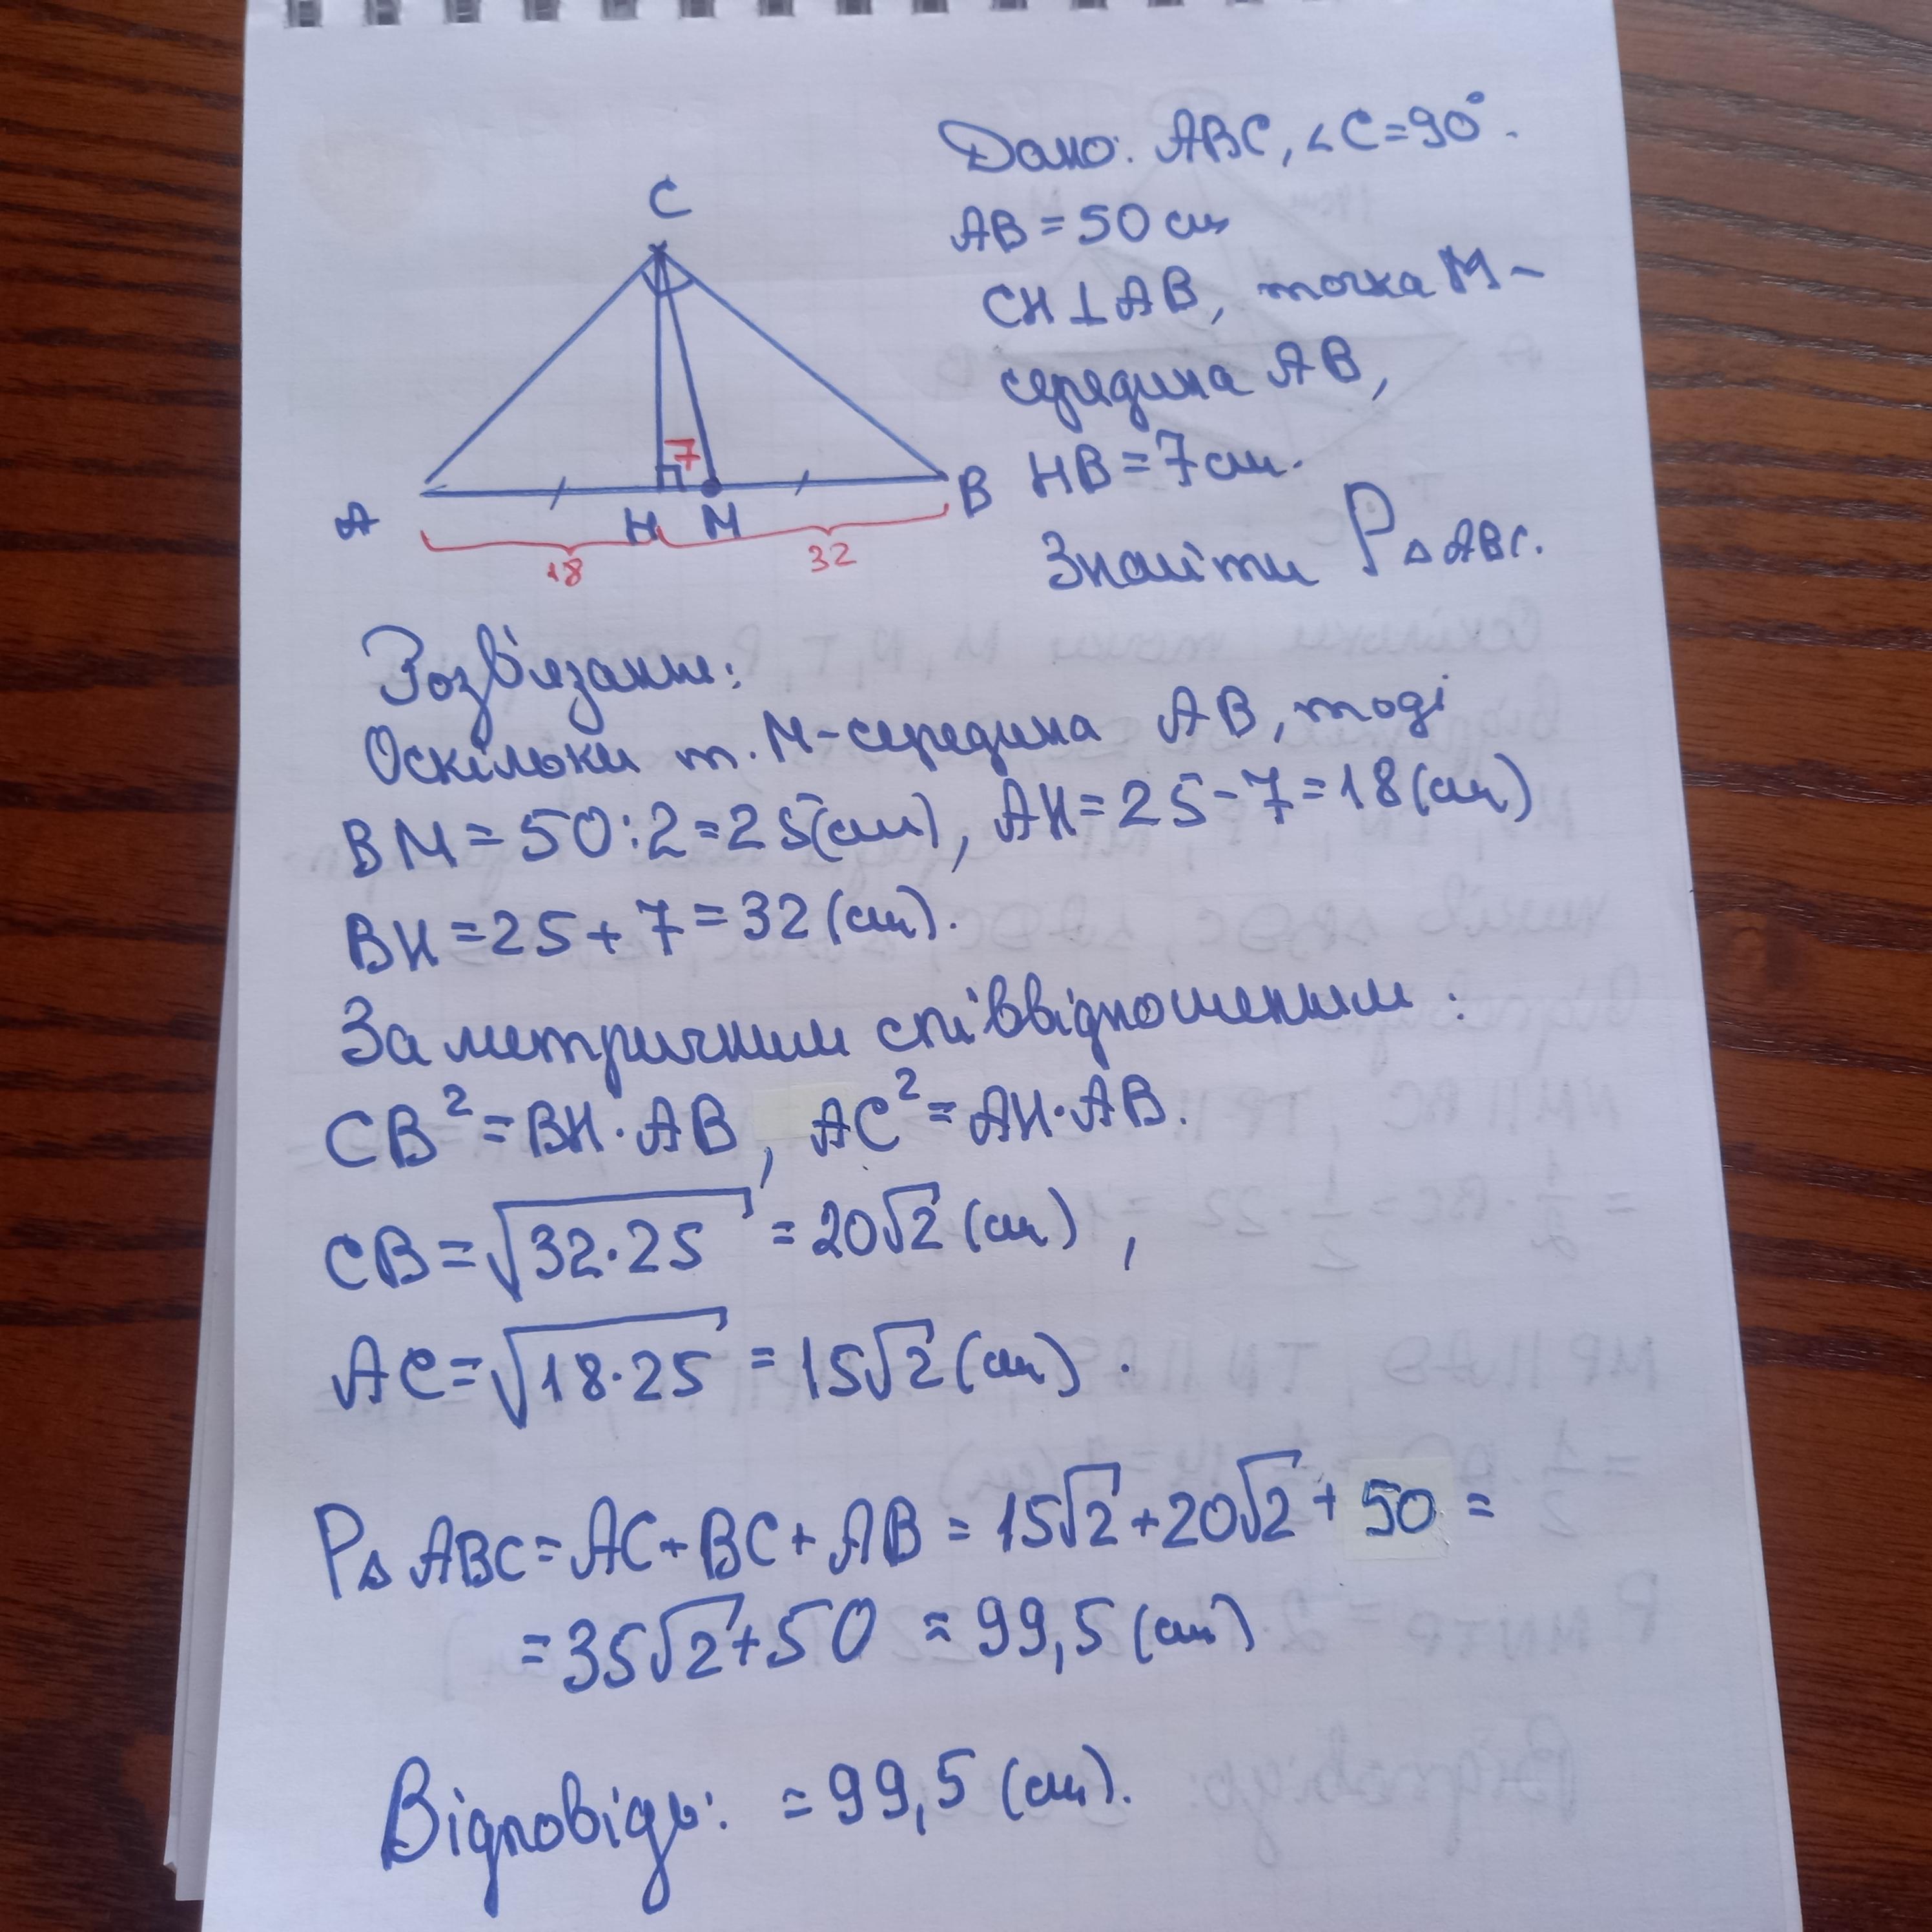 Дано: ABC, ∠C=90°.
AB = 50 см
CH⊥AB, точка M –
середина AB,
HB = 7 см.
Знайти P△ABC.
C
7
A
H M
B
18
32
Розв'язання:
Оскільки т. M – середина AB, тоді
BM = 50:2 = 25(см), AH = 25 - 7 = 18 (см)
BH = 25 + 7 = 32 (см).
За метричним співвідношенням:
CB² = BH · AB, AC² = AH · AB.
CB = √32·25 = 20√2 (см),
AC = √18·25 = 15√2 (см).
P△ABC = AC + BC + AB = 15√2 + 20√2 + 50 =
= 35√2 + 50 ≈ 99,5 (см)
Відповідь: ≈ 99,5 (см).